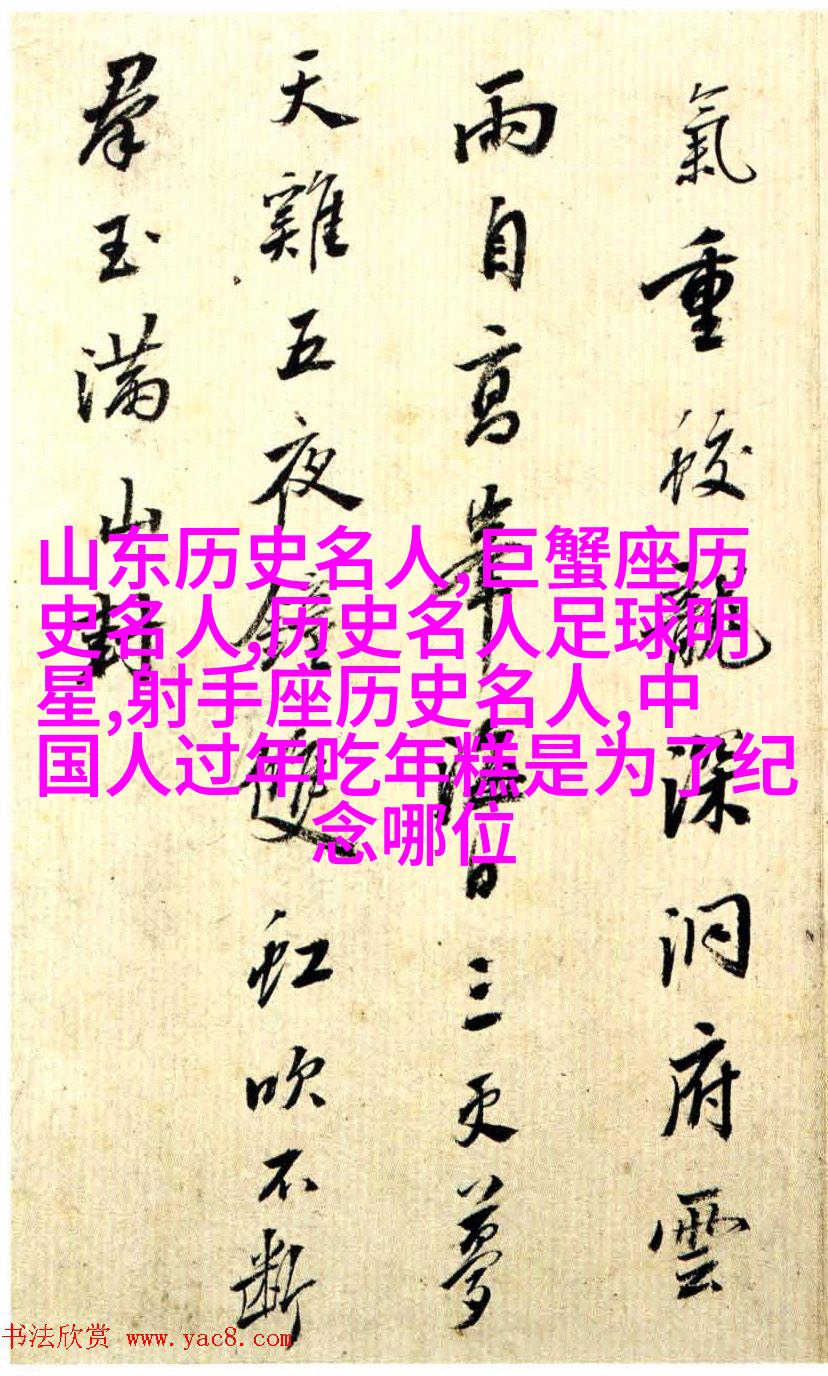 氣重蛟龍深洞府雲
雨自高峯海日三更夢
天雞五夜鐘雙虹吹不斷
羣玉滿山封
山东历史名人,巨蟹座历
史名人,历史名人足球明
星,射手座历史名人,中
国人过年吃年糕是为了纪
念哪位
书法欣赏 www.yac8.com